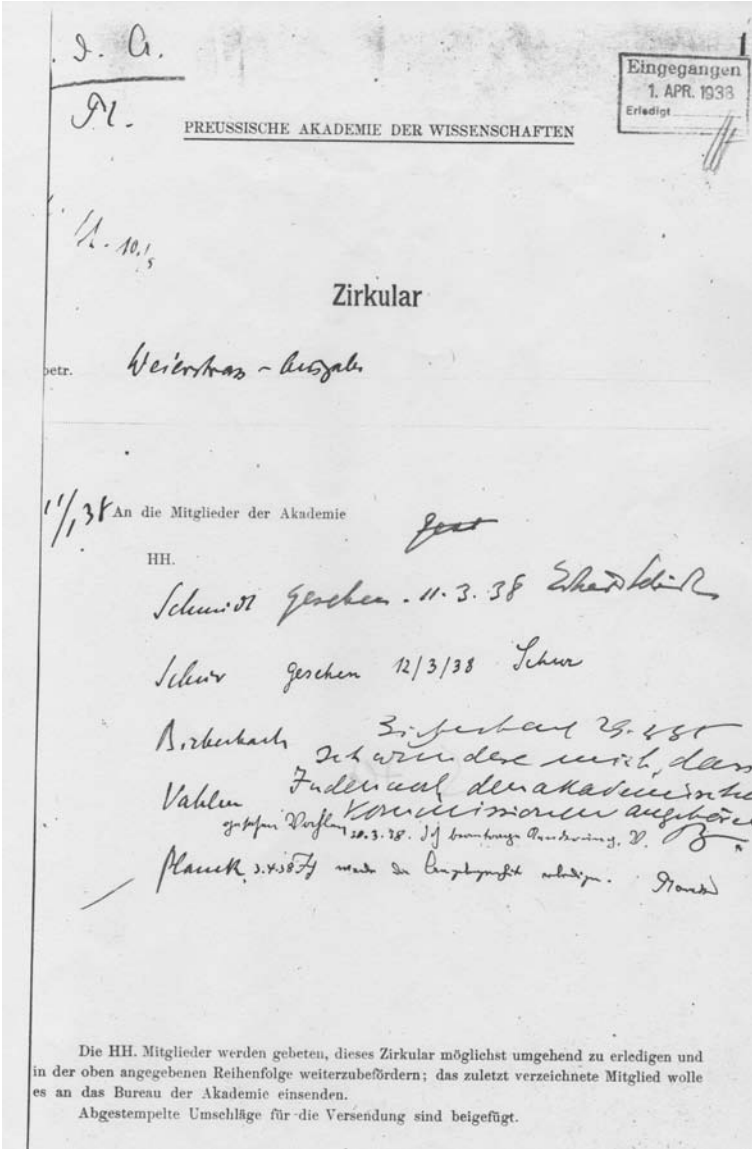 J. A.
1
Eingegangen
1. APR. 1938
Erledigt
Pl.
PREUSSISCHE AKADEMIE DER WISSENSCHAFTEN
Zirkular
betr. Weierstrass - Ausgabe
11/3 38 An die Mitglieder der Akademie
HH.
Schmidt gesehen. 11.3.38 Erhard Schmidt
Schur gesehen 12/3/38 Schur
Bieberbach Bieberbach 29.
Ich wundere mich, dass
Vahlen Juden noch den akademischen
Kommissionen angehören
gesehen Vahlen 30.3.38. Ich beantrage Aenderung. V. B
Planck. 3.4.38 Ich werde die Angelegenheit erledigen. Planck
Die HH. Mitglieder werden gebeten, dieses Zirkular möglichst umgehend zu erledigen und
in der oben angegebenen Reihenfolge weiterzubefördern; das zuletzt verzeichnete Mitglied wolle
es an das Bureau der Akademie einsenden.
Abgestempelte Umschläge für die Versendung sind beigefügt.